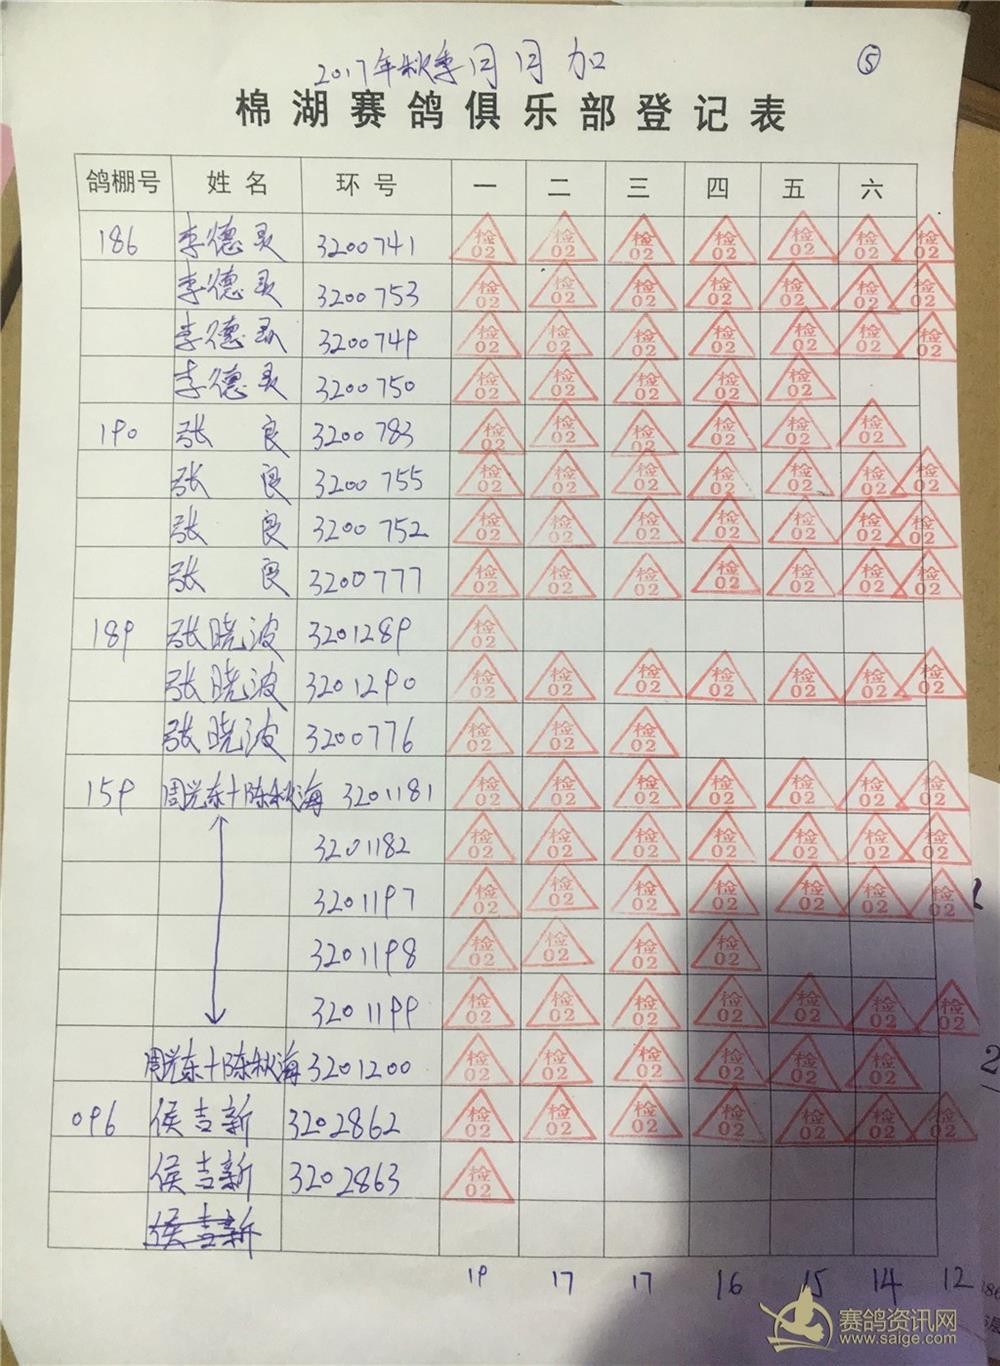 2017年秋季月月加 ⑤
棉湖赛鸽俱乐部登记表
鸽棚号 姓名 环号 一 二 三 四 五 六
186 李德灵 3200741 检02 检02 检02 检02 检02 检02 检02
李德灵 3200753 检02 检02 检02 检02 检02 检02 检02
李德灵 3200749 检02 检02 检02 检02 检02 检02 检02
李德灵 3200750 检02 检02 检02 检02 检02
190 张良 3200783 检02 检02 检02 检02 检02 检02
张良 3200755 检02 检02 检02 检02 检02 检02 检02
张良 3200752 检02 检02 检02 检02 检02 检02 检02
张良 3200777 检02 检02 检02 检02 检02 检02 检02
189 张晓波 3201289 检02
张晓波 3201290 检02 检02 检02 检02 检02 检02 检02
张晓波 3200776 检02 检02 检02
159 周光东+陈秋海 3201181 检02 检02 检02 检02 检02 检02 检02
3201182 检02 检02 检02 检02 检02 检02 检02
3201197 检02 检02 检02 检02 检02 检02 检02
3201198 检02 检02 检02 检02
3201199 检02 检02 检02 检02 检02 检02 检02
周光东+陈秋海 3201200 检02 检02 检02 检02 检02 检02
096 侯吉新 3202862 检02 检02 检02 检02 检02 检02 检02
侯吉新 3202863 检02
侯吉新
19 17 17 16 15 14 12
赛鸽资讯网
www.saige.com